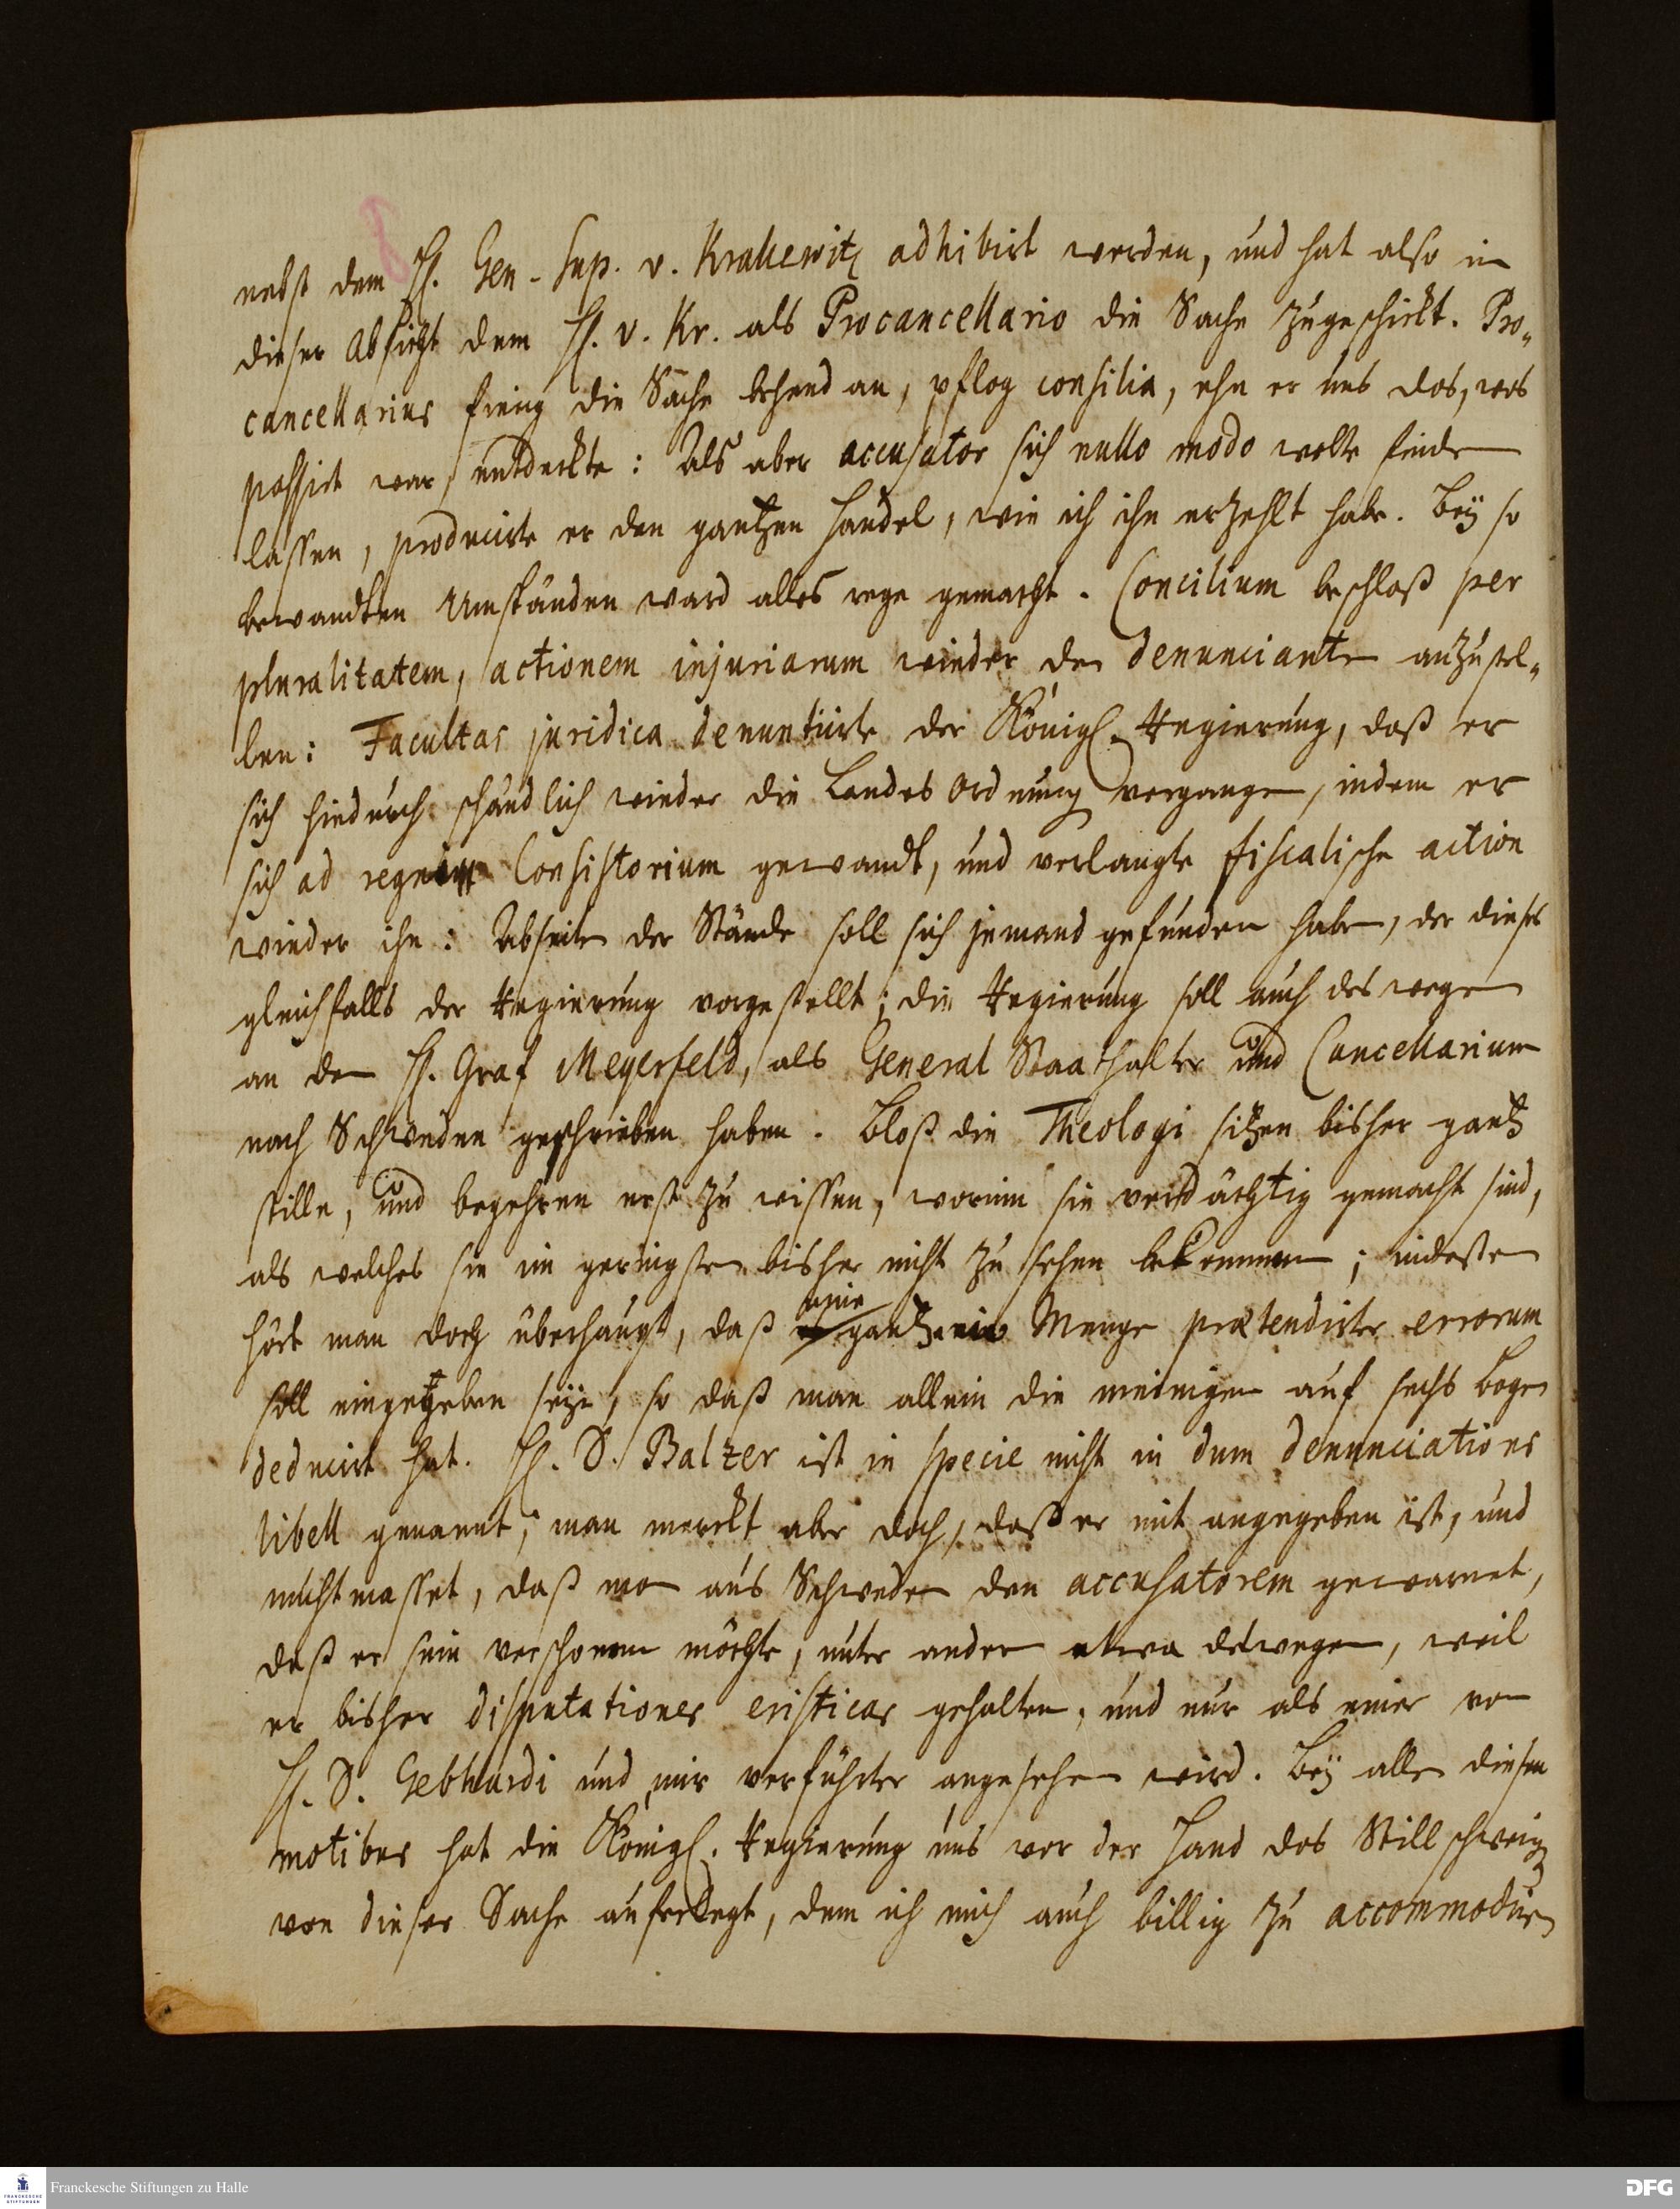 nebst dem H. Gen-Sup. v. Krakewitz adhibirt werden, und hat also in
dieser Absicht dem H. v. Kr. als Procancellario die Sache zugeschickt. Pro-
cancellarius fieng die Sache behend an, pflog consilia, ehe er uns das, was
passirt war, entdeckte: Als aber accusator sich nullo modo wolte finden
lassen, producirte er den gantzen Handel, wie ich ihn erzehlt habe. Bey so
bewandten Umständen ward alles rege gemacht. Concilium beschloß per
pluralitatem, actionem injuriarum wieder den denuncianten anzustel-
len: Facultas juridica denuntiirte der Königl. Regierung, daß er
sich hiedurch schändlich wieder die Landes Ordnung vergangen, indem er
sich ad regium Consistorium gewandt, und verlangte fiscalische action
wieder ihn: Abseiten der Stände soll sich jemand gefunden haben, der dieses
gleichfalls der Regierung vorgestellt; die Regierung soll auch deswegen
an den H. Graf Meyerfeld, als General Staathalter und Cancellarium
nach Schweden geschrieben haben. Bloß die Theologi sitzen bisher gantz
stille, und begehren erst zu wissen, worinn sie verdächtig gemacht sind,
als welches sie im geringsten bisher nicht zu sehen bekommen; indessen
hört man doch überhaupt, daß eine gantze Menge prætendirter errorum
soll eingegeben seyn, so daß man allein die meinigen auf sechs Bogen
deducirt hat. H. D. Balzer ist in specie nicht in dem denunciations
libell genannt; man merckt aber doch, daß er mit angegeben ist, und
muthmasset, daß man aus Schweden den accusatorem gewarnet,
daß er sein verschonen möchte, unter andern etwa deswegen, weil
er bisher disputationes eristicas gehalten, und nur als einer von
H. D. Gebhardi und mir verführter angesehen wird. Bey allen diesen
motibus hat die Königl. Regierung uns vor der Hand das Stillschweigen
von dieser Sache auferlegt, dem ich mich auch billig zu accommodiren
Franckesche Stiftungen zu Halle
FRANCKESCHE STIFTUNGEN
DFG